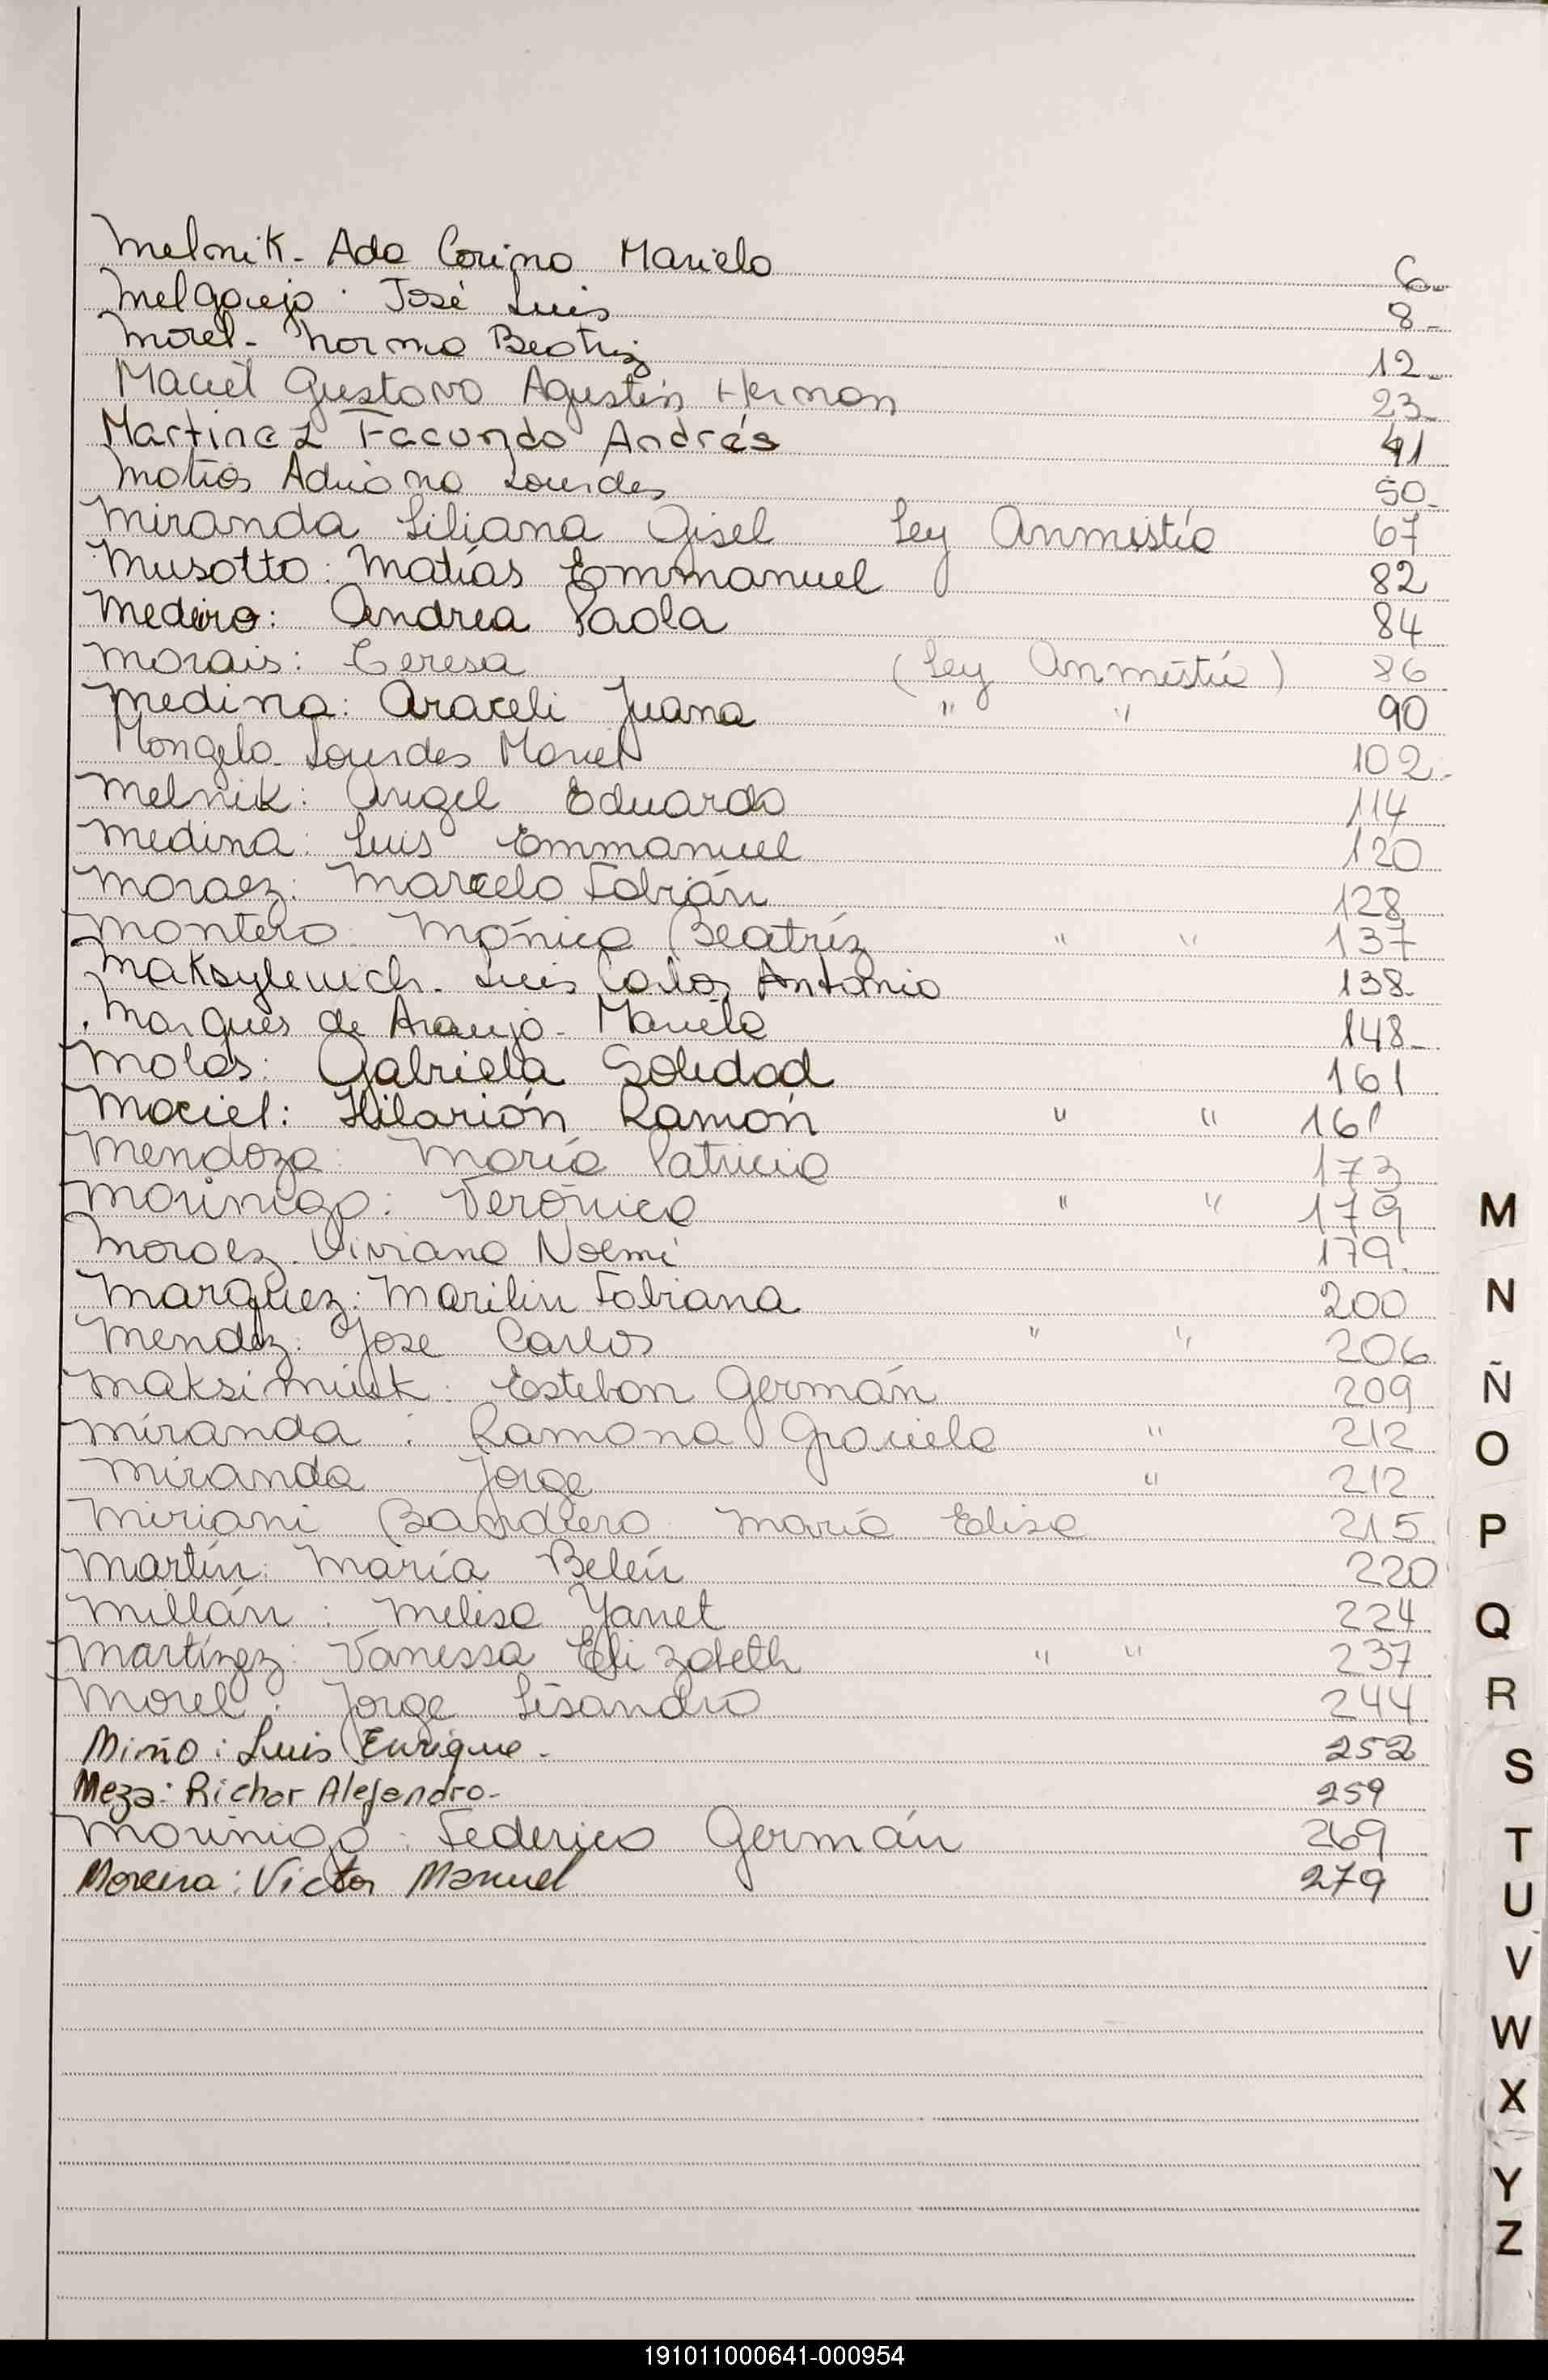 Melnik - Ada Corina Mariela 6-
Melgarejo - José Luis 8-
Morel - Norma Beatriz 12-
Maciel Gustavo Agustín Hernan 23-
Martinez Facundo Andrés 41
Matias Adriana Lourdes 50-
Miranda Liliana Gisel Ley Anmistía 67
Musotto: Matías Emmanuel 82
Andrea Paola 84
Morais: Teresa (Ley Anmistía) 86
Medina: Araceli Juana " " 90
Mongelo - Lourdes Mariel 102-
Melnik: Angel Eduardo 114
Medina: Luis Emmanuel 120
Moraez: Marcelo Fabián 128
Montero: Mónica Beatríz " " 137
Luis Carlos Antonio 138-
Marques de Araujo - Mariela 148-
Molas: Gabriela Soledad 161
Maciel: Hilarión Ramón " " 161
Mendoza: María Patricia 173
Morinigo: Verónica " " 179
Moraez - Viviana Noemí 179
Marquez: Marilin Fabiana 200
Mendez: Jose Carlos " " 206
Esteban Germán 209
Miranda: Ramona Graciela " 212
Miranda Jorge " 212
Miriani María Elisa 215
Martín: María Belén 220
Millán: Melisa Yanet 224
Martínez: Vanessa Elizabeth " " 237
Morel: Jorge Lisandro 244
Miño: Luis Enrique - 252
Meza: Richar Alejandro - 259
Morinigo: Federico Germán 269
Moreira: Victor Manuel 279
M
N
Ñ
O
P
Q
R
S
T
U
V
W
X
Y
Z
191011000641-000954